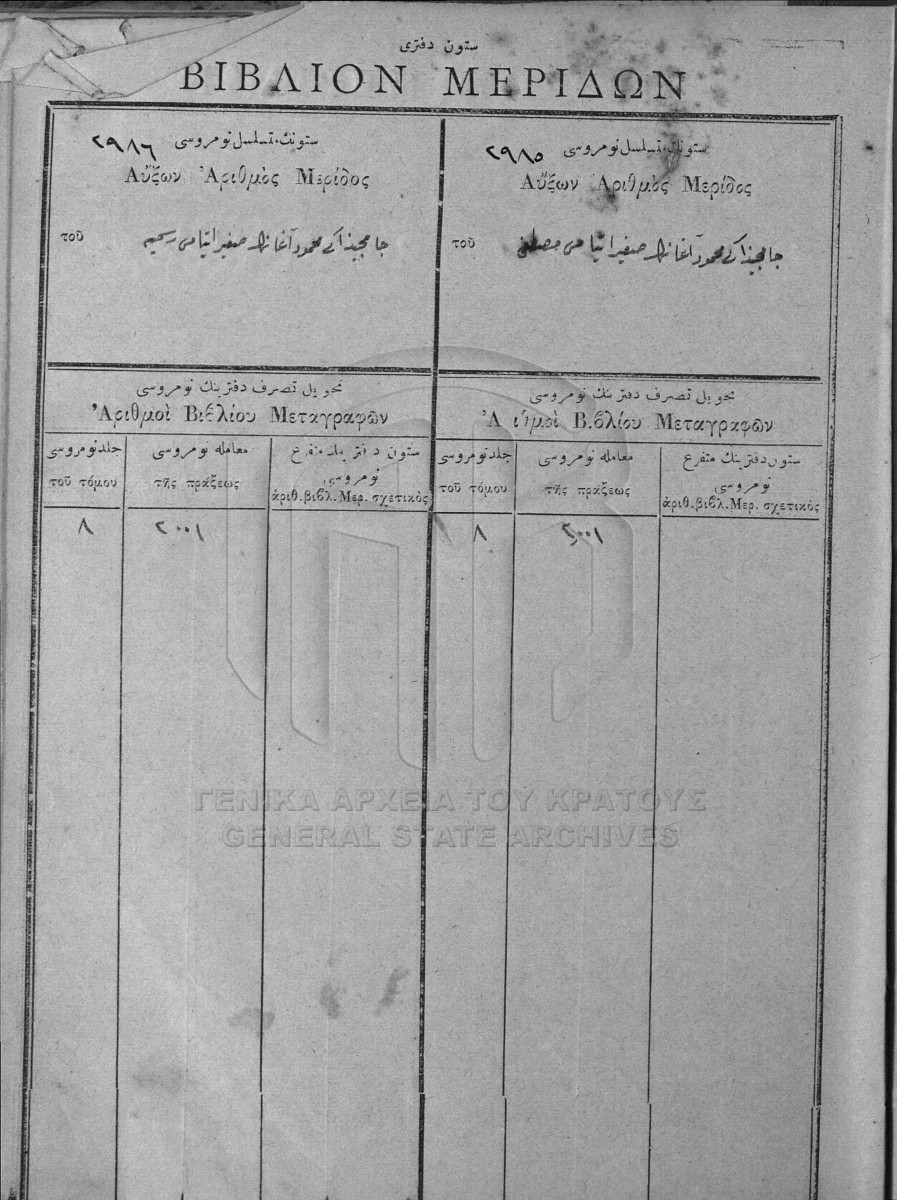 ستون دفتری
ΒΙΒΛΙΟΝ ΜΕΡΙΔΩΝ
ستونك تسلسل نومروسی ٢٩٨٥
Αὔξων Ἀριθμὸς Μερίδος
τοῦ
محمود آغا مصطفی
ستونك تسلسل نومروسی ٢٩٨٦
Αὔξων Ἀριθμὸς Μερίδος
τοῦ
محمود آغا
تحویل تصرف دفترینك نومروسی
Ἀ ιθμοὶ Βιβλίου Μεταγραφῶν
جلد نومروسی
τοῦ τόμου
معامله نومروسی
τῆς πράξεως
ستون دفترینك متفرع
نومروسی
ἀριθ.βιβλ.Μερ. σχετικὸς
٨ ٢٠٠١
تحویل تصرف دفترینك نومروسی
Ἀριθμοὶ Βιβλίου Μεταγραφῶν
جلد نومروسی
τοῦ τόμου
معامله نومروسی
τῆς πράξεως
ستون دفترینك متفرع
نومروسی
ἀριθ.βιβλ.Μερ. σχετικὸς
٨ ٢٠٠١
ΓΕΝΙΚΑ ΑΡΧΕΙΑ ΤΟΥ ΚΡΑΤΟΥΣ
GENERAL STATE ARCHIVES